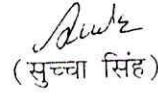 (सुच्चा सिंह)